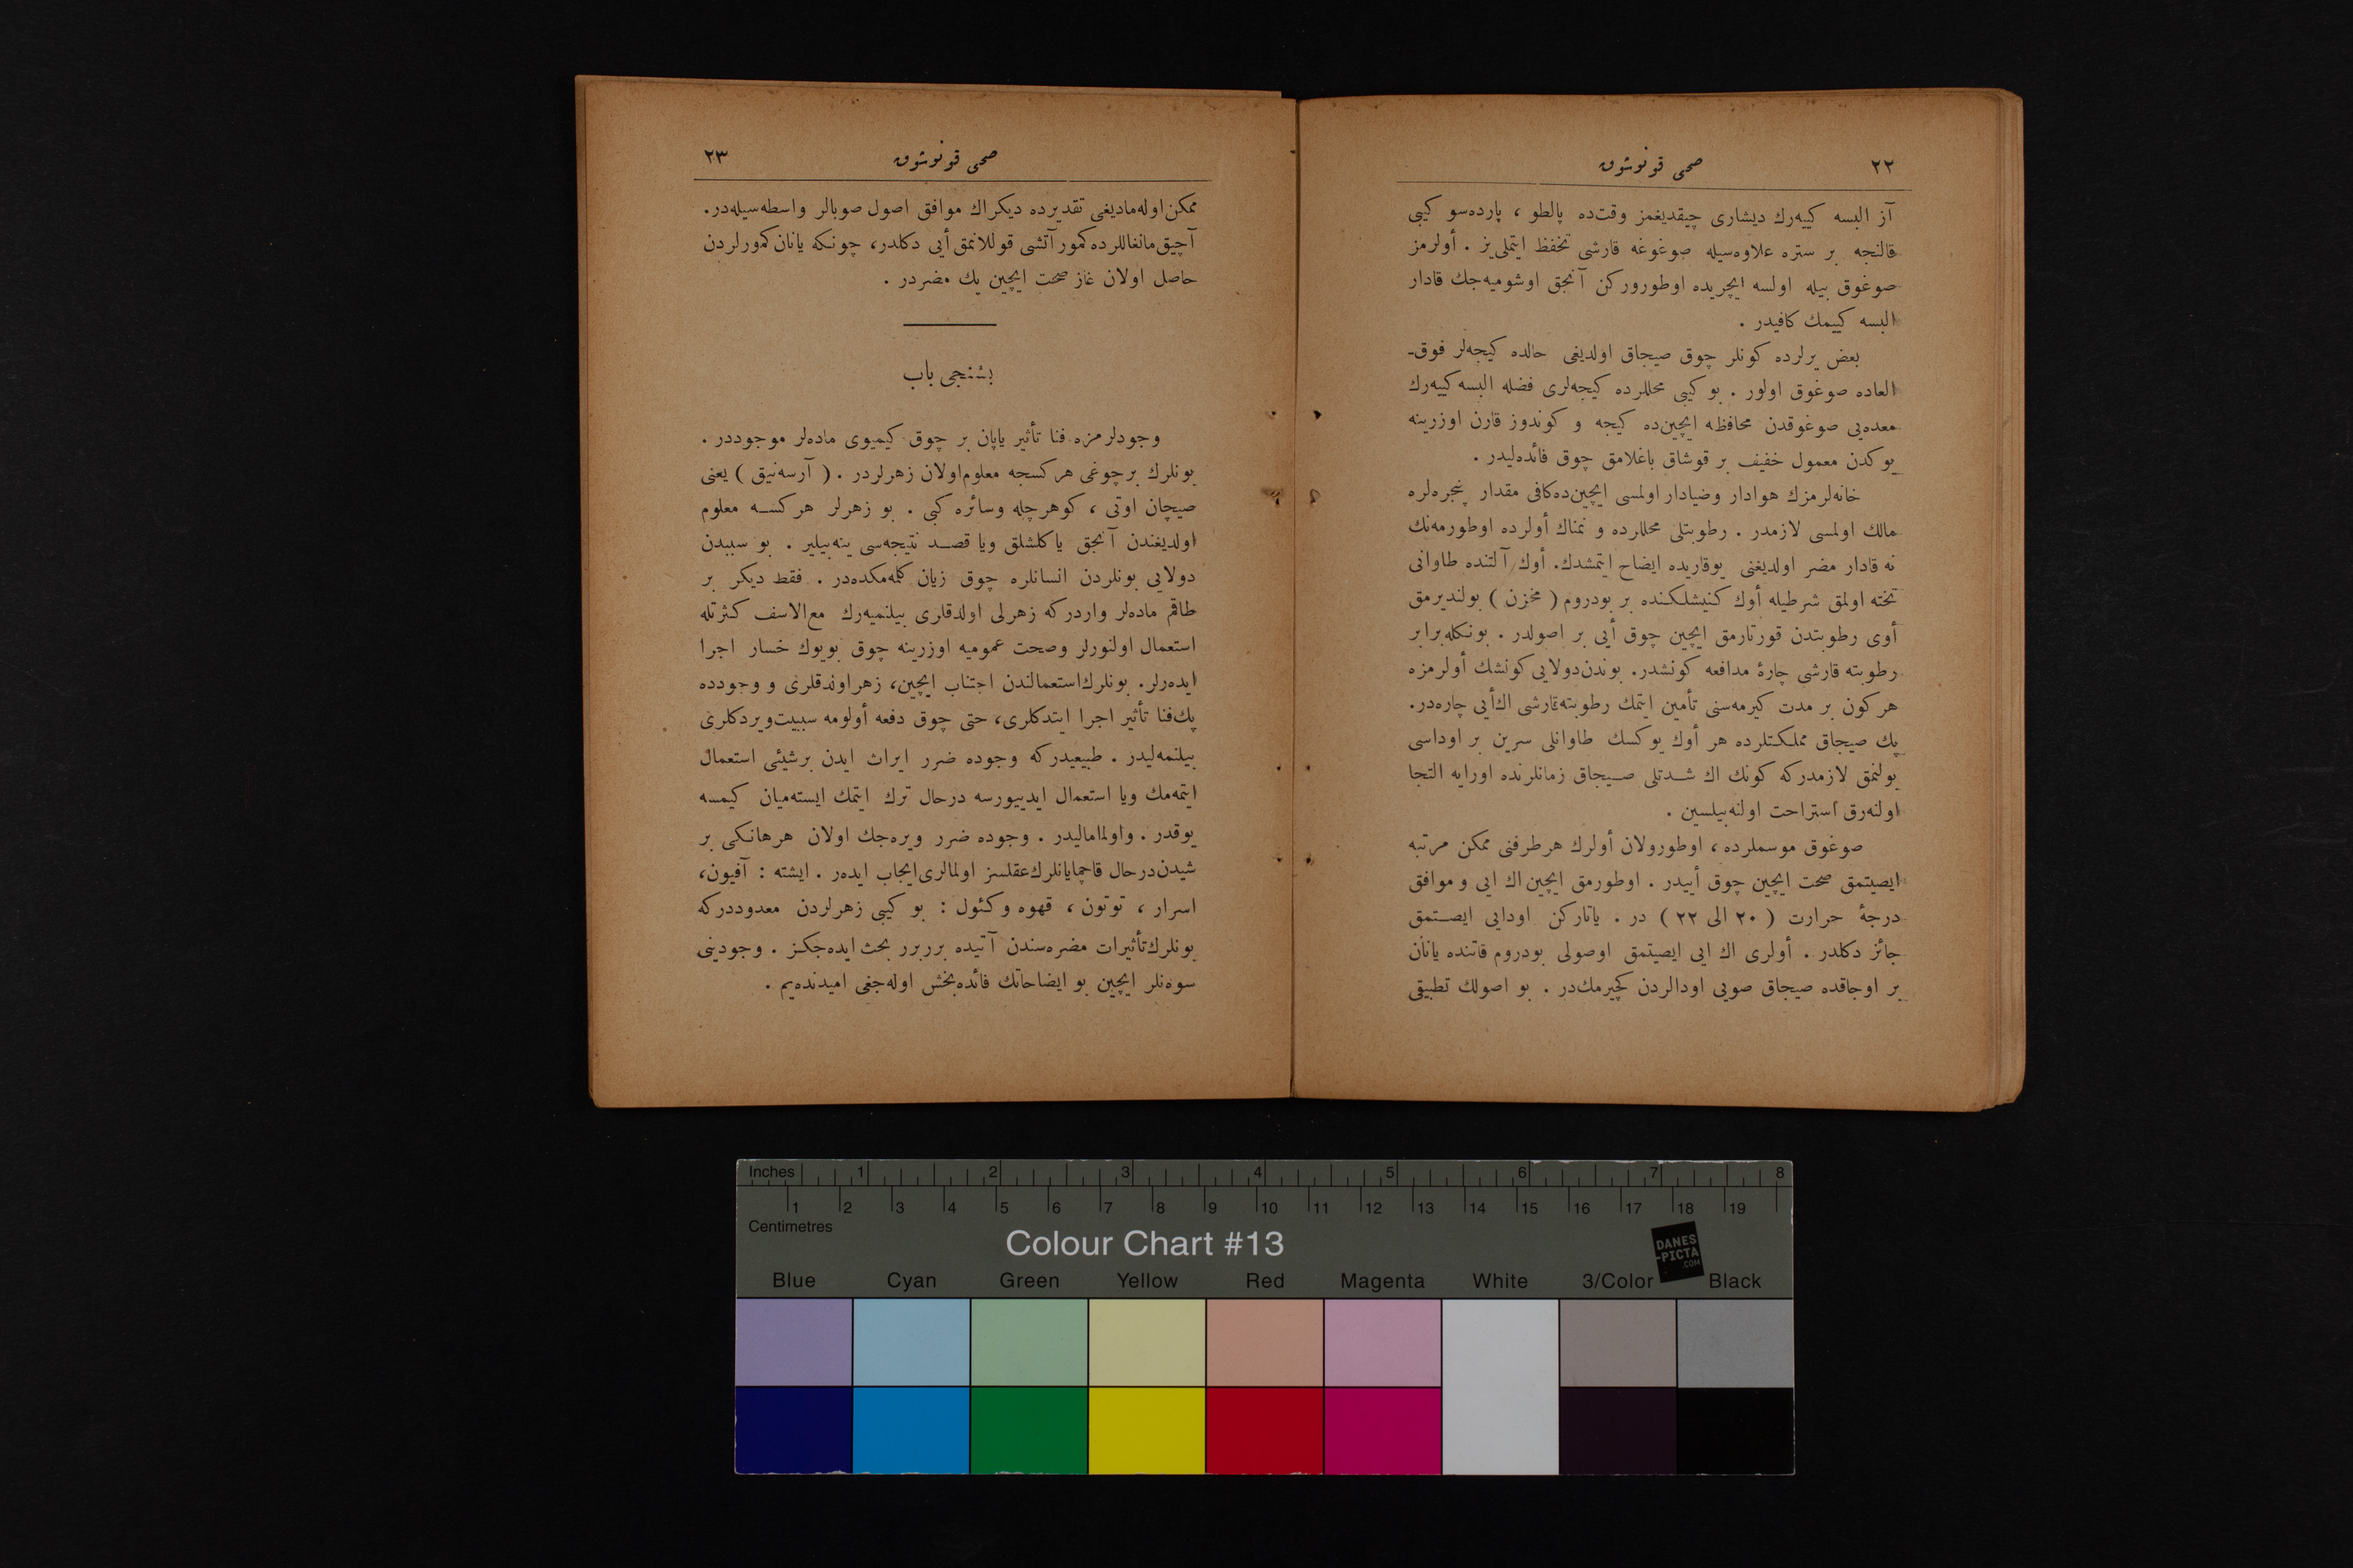 ٢٢
صحی قونوشوق
آز البسه كییه‌رك دیشاری چیقدیغمز وقت‌ده پالطو ، پارده‌سو كیبی
قالنجه بر ستره علاوه‌سیله صوغوغه قارشی تحفظ ایتملی‌یز . أولرمز
صوغوق بیله اولسه ایچریده اوطورورکن آنجق اوشومیه‌جك قادار
البسه كییمك كافیدر .
بعض یرلرده كونلر چوق صیجاق اولدیغی حالده كیجه‌لر فوق-
العاده صوغوق اولور . بو كیبی محللرده كیجه‌لری فضله البسه كییه‌رك
معده‌یی صوغوقدن محافظه ایچین‌ده كیجه و كوندوز قارن اوزرینه
یوكدن معمول خفیف بر قوشاق باغلامق چوق فائده‌لیدر .
خانه‌لرمزك هوادار وضیادار اولمسی ایچین‌ده كافی مقدار پنجره‌لره
مالك اولمسی لازمدر . رطوبتلی محللرده و نمناك أولرده اوطورمه‌نك
نه قادار مضر اولدیغنی یوقاریده ایضاح ایتمشدك. أوك آلتنده طاوانی
تخته اولمق شرطیله أوك كنیشلكنده بر بودروم ( مخزن ) بولندیرمق
أوی رطوبتدن قورتارمق ایچین چوق أیی بر اصولدر . بونكله برابر
رطوبته قارشی چارهٔ مدافعه كونشدر. بوندن دولایی كونشك أولرمزه
هر كون بر مدت كیرمه‌سنی تأمین ایتمك رطوبته قارشی اك أیی چاره‌در.
پك صیجاق مملكتلرده هر أوك یوكسك طاوانلی سرین بر اوداسی
بولنمق لازمدركه كونك اك شدتلی صیجاق زمانلرنده اورایه التجا
اولنه‌رق استراحت اولنه‌بیلسین .
صوغوق موسملرده ، اوطورولان أولرك هرطرفنی ممكن مرتبه
ایصیتمق صحت ایچین چوق أییدر . اوطورمق ایچین اك ایی و موافق
درجهٔ حرارت ( ٢٠ الی ٢٢ ) در . یاتاركن اودایی ایصتمق
جائز دكلدر . أولری اك ایی ایصیتمق اوصولی بودروم قاتنده یانان
بر اوجاقده صیجاق صویی اودالردن كچیرمك‌در . بو اصولك تطبیقی
صحی قونوشوق
٢٣
ممكن اوله‌مادیغی تقدیرده دیكر اك موافق اصول صوبالر واسطه‌سیله‌در.
آچیق مانغاللرده كمور آتشی قوللانمق أیی دكلدر، چونكه یانان كمورلردن
حاصل اولان غاز صحت ایچین پك مضردر .
بشنجی باب
وجودلرمزه فنا تأثیر یاپان بر چوق كیمیوی ماده‌لر موجوددر .
بونلرك برچوغی هركسجه معلوم اولان زهرلردر . ( آرسه‌نیق ) یعنی
صیچان اوتی ، كوهرچله وسائره كبی . بو زهرلر هركسه معلوم
اولدیغندن آنجق یاكلشلق ویا قصد نتیجه‌سی ینه‌بیلیر . بو سببدن
دولایی بونلردن انسانلره چوق زیان كلمه‌مكده‌در . فقط دیكر بر
طاقم ماده‌لر واردركه زهرلی اولدقلری بیلنمیه‌رك مع‌الاسف كثرتله
استعمال اولنورلر وصحت عمومیه اوزرینه چوق بویوك خسار اجرا
ایده‌رلر. بونلرك استعمالندن اجتناب ایچین، زهر اوندقلری و وجودده
پك فنا تأثیر اجرا ایتدكلری، حتی چوق دفعه أولومه سببیت ویردكلری
بیلنمه‌لیدر . طبیعیدركه وجوده ضرر ایراث ایدن برشیئی استعمال
ایتمه‌مك ویا استعمال ایدییورسه درحال ترك ایتمك ایسته‌میان كیمسه
یوقدر . واولمامالیدر . وجوده ضرر ویره‌جك اولان هر هانكی بر
شیدن درحال قاچمایانلرك عقلسز اولمالری ایجاب ایده‌ر . ایشته : آفیون،
اسرار ، توتون ، قهوه و كئول : بو كیبی زهرلردن معدوددركه
بونلرك تأثیرات مضره‌سندن آتیده بررر بحث ایده‌جكز . وجودینی
سوه‌نلر ایچین بو ایضاحاتك فائده‌بخش اوله‌جغی امیدنده‌یم .
Inches 1 2 3 4 5 6 7 8
1 2 3 4 5 6 7 8 9 10 11 12 13 14 15 16 17 18 19
Centimetres
Colour Chart #13
DANES
-PICTA
.COM
Blue Cyan Green Yellow Red Magenta White 3/Color Black